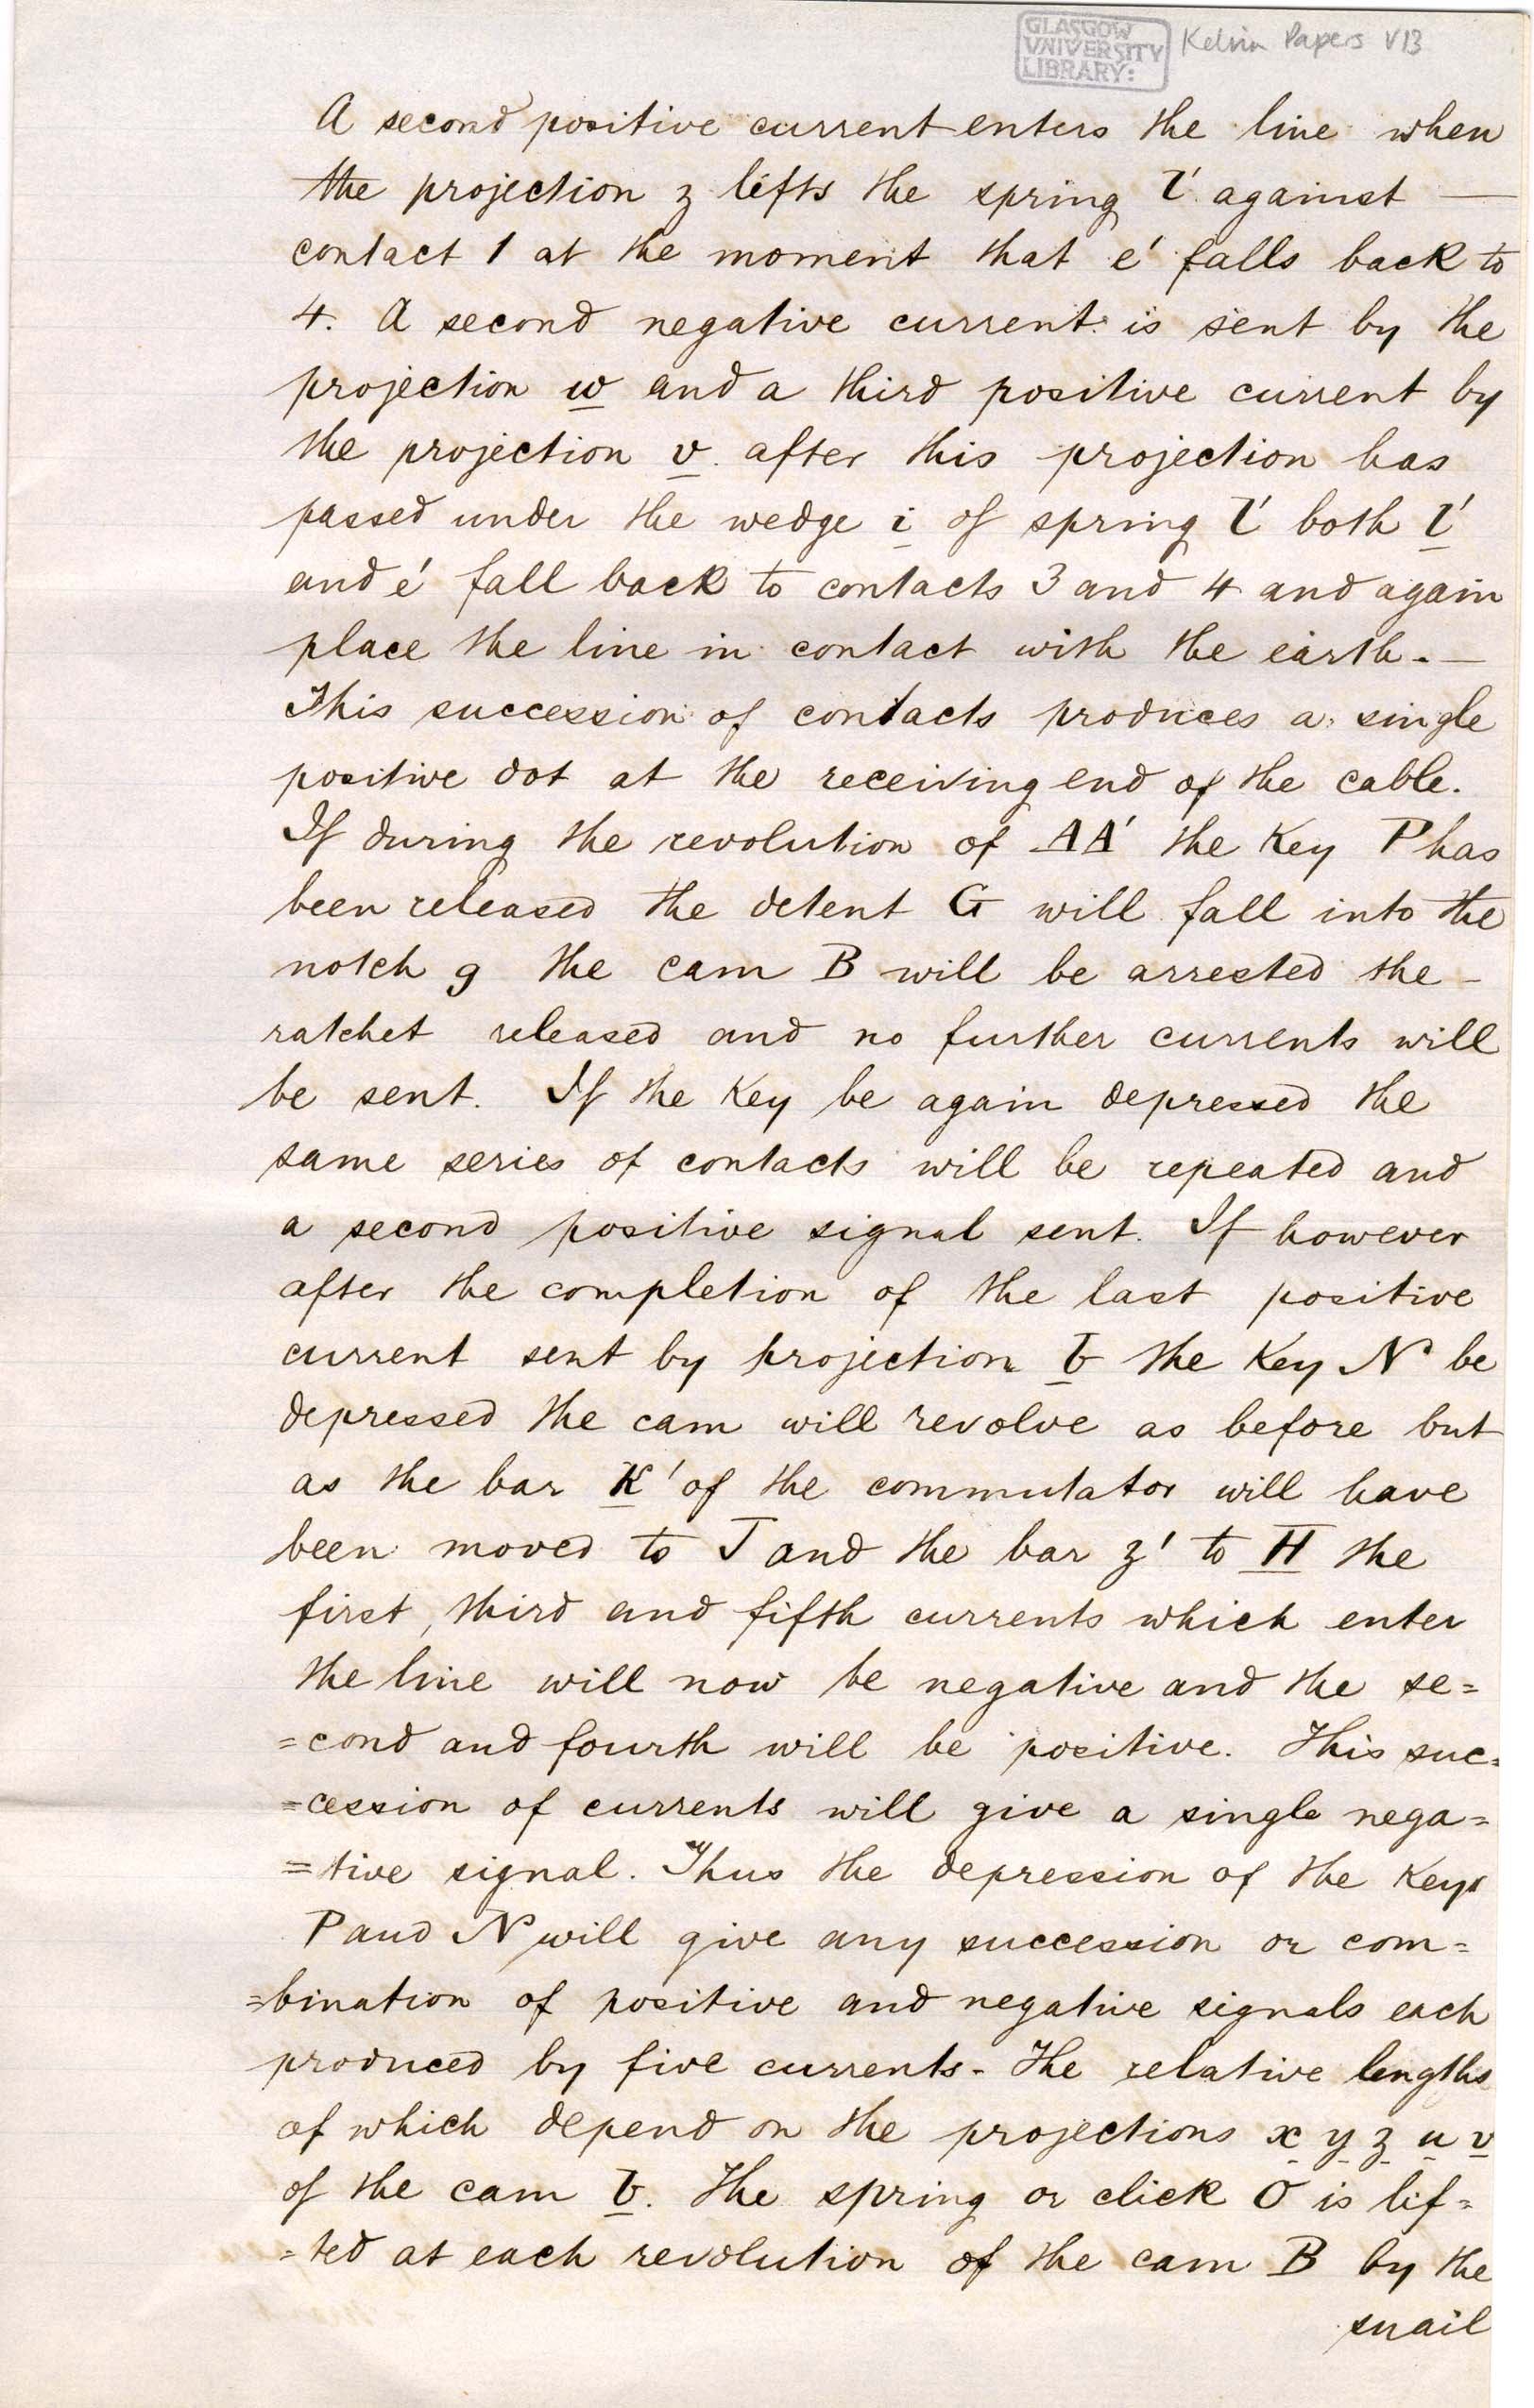 GLASGOW
UNIVERSITY
LIBRARY:
Kelvin Papers V13
A second positive current enters the line when
the projection z lifts the spring l' against —
contact 1 at the moment that e' falls back to
4. A second negative current is sent by the
projection w and a third positive current by
the projection v. after this projection has
passed under the wedge i of spring l' both l'
and e' fall back to contacts 3 and 4 and again
place the line in contact with the earth. —
This succession of contacts produces a single
positive dot at the receiving end of the cable.
If during the revolution of AA' the Key P has
been released the detent G will fall into the
notch g the cam B will be arrested the –
ratchet released and no further currents will
be sent. If the Key be again depressed the
same series of contacts will be repeated and
a second positive signal sent. If however
after the completion of the last positive
current sent by projection the Key N be
depressed the cam will revolve as before but
as the bar K' of the commutator will have
been moved to J and the bar z' to H the
first, third and fifth currents which enter
the line will now be negative and the se=
=cond and fourth will be positive. This suc=
=cession of currents will give a single nega=
=tive signal. Thus the depression of the Keys
P and N will give any succession or com=
=bination of positive and negative signals each
produced by five currents- The relative lengths
of which depend on the projections x y z u v
of the cam b. The spring or click O is lif=
=ted at each revolution of the cam B by the
snail